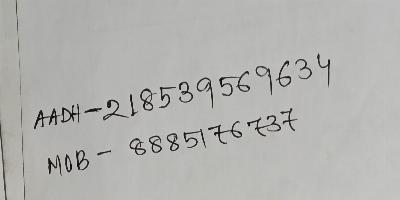 AADH-218539569634
MOB - 8885176737